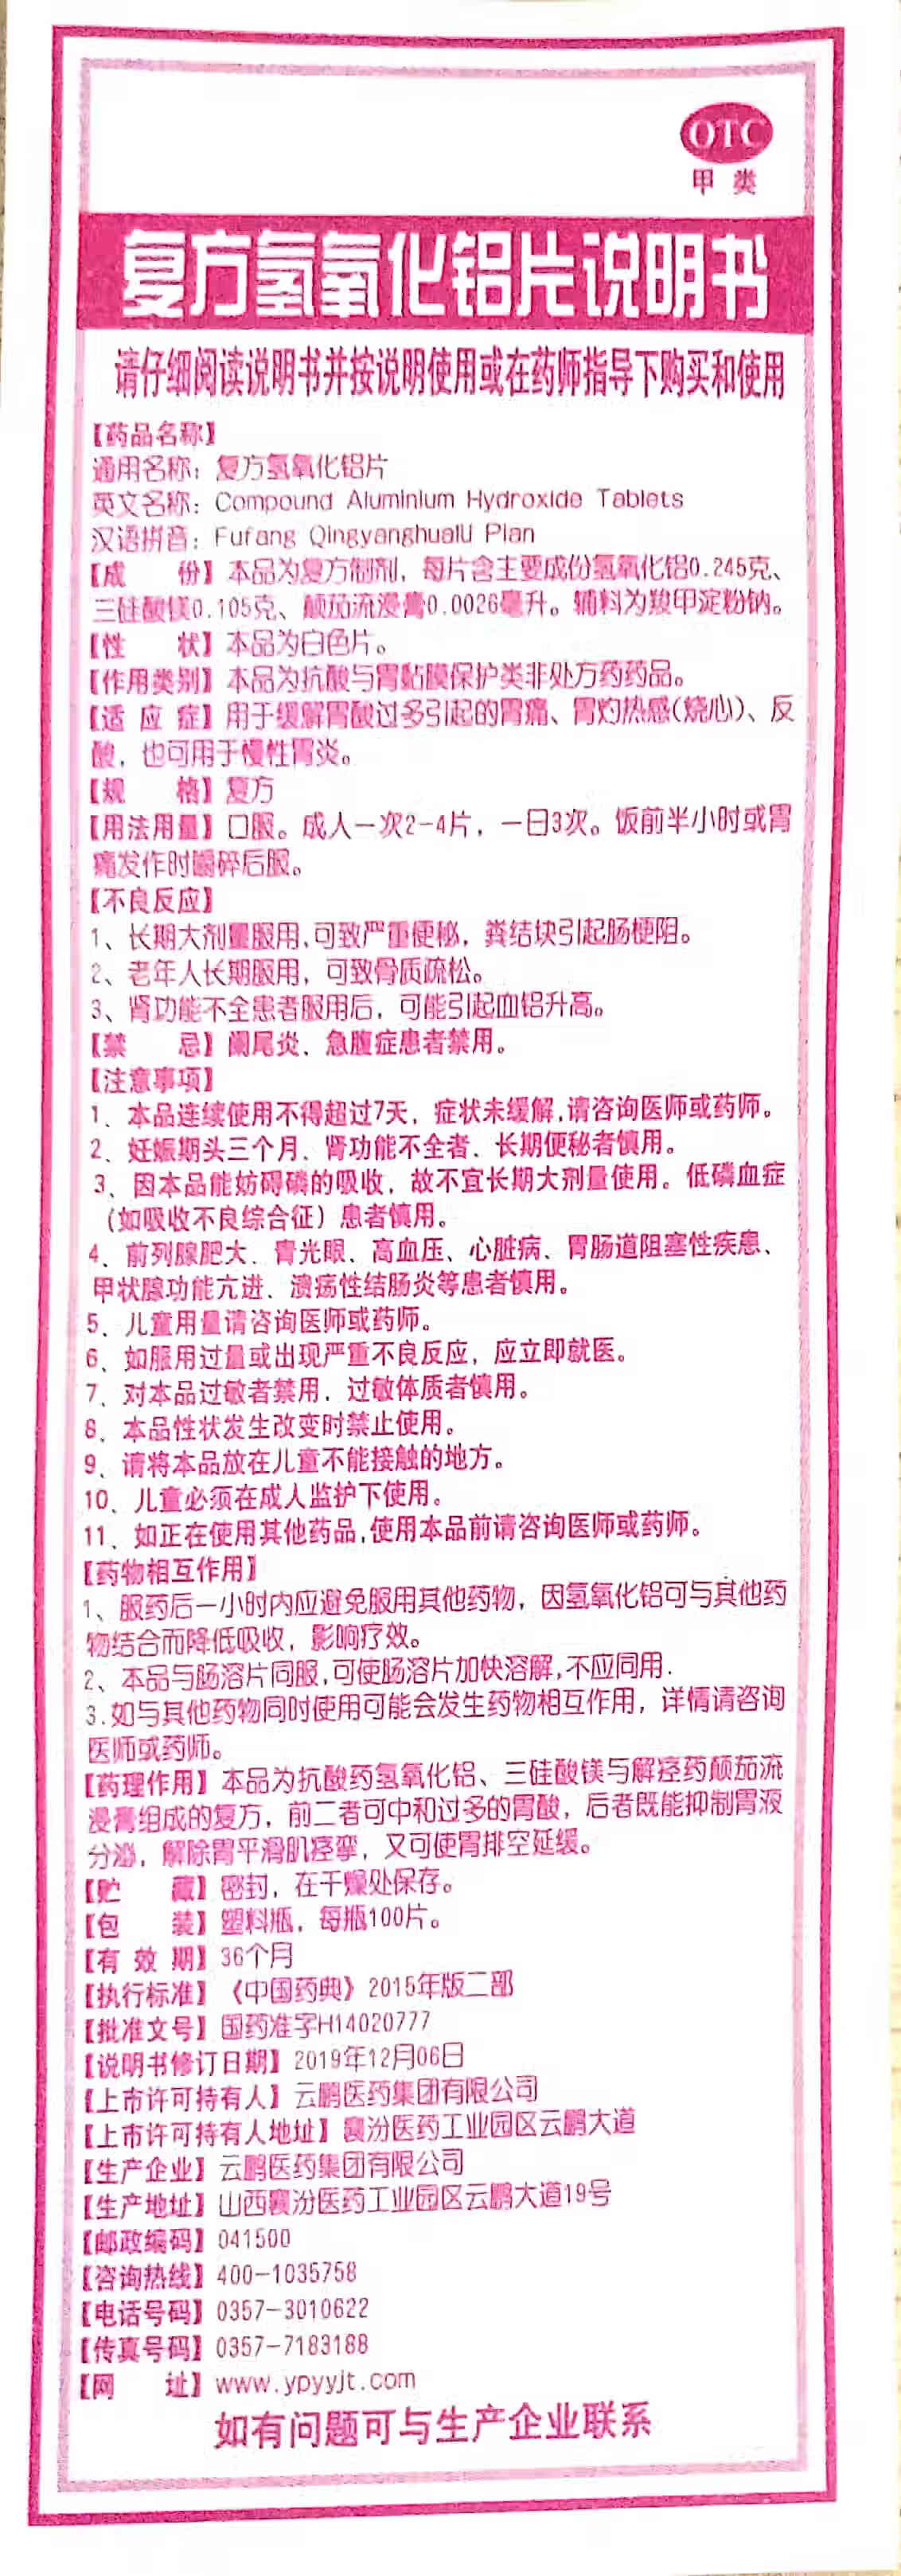 OTC
甲类
复方氢氧化铝片说明书
请仔细阅读说明书并按说明使用或在药师指导下购买和使用
【药品名称】
通用名称：复方氢氧化铝片
英文名称：Compound Aluminium Hydroxide Tablets
汉语拼音：Fufang Qingyanghualü Pian
【成　　份】本品为复方制剂，每片含主要成份氢氧化铝0.245克、
三硅酸镁0.105克、颠茄流浸膏0.0026毫升。辅料为羧甲淀粉钠。
【性　　状】本品为白色片。
【作用类别】本品为抗酸与胃黏膜保护类非处方药药品。
【适 应 症】用于缓解胃酸过多引起的胃痛、胃灼热感(烧心)、反
酸，也可用于慢性胃炎。
【规　　格】复方
【用法用量】口服。成人一次2-4片，一日3次。饭前半小时或胃
痛发作时嚼碎后服。
【不良反应】
1、长期大剂量服用,可致严重便秘，粪结块引起肠梗阻。
2、老年人长期服用，可致骨质疏松。
3、肾功能不全患者服用后，可能引起血铝升高。
【禁　　忌】阑尾炎、急腹症患者禁用。
【注意事项】
1、本品连续使用不得超过7天，症状未缓解,请咨询医师或药师。
2、妊娠期头三个月、肾功能不全者、长期便秘者慎用。
3、因本品能妨碍磷的吸收，故不宜长期大剂量使用。低磷血症
（如吸收不良综合征）患者慎用。
4、前列腺肥大、青光眼、高血压、心脏病、胃肠道阻塞性疾患、
甲状腺功能亢进、溃疡性结肠炎等患者慎用。
5、儿童用量请咨询医师或药师。
6、如服用过量或出现严重不良反应，应立即就医。
7、对本品过敏者禁用，过敏体质者慎用。
8、本品性状发生改变时禁止使用。
9、请将本品放在儿童不能接触的地方。
10、儿童必须在成人监护下使用。
11、如正在使用其他药品,使用本品前请咨询医师或药师。
【药物相互作用】
1、服药后一小时内应避免服用其他药物，因氢氧化铝可与其他药
物结合而降低吸收，影响疗效。
2、本品与肠溶片同服,可使肠溶片加快溶解,不应同用.
3.如与其他药物同时使用可能会发生药物相互作用，详情请咨询
医师或药师。
【药理作用】本品为抗酸药氢氧化铝、三硅酸镁与解痉药颠茄流
浸膏组成的复方，前二者可中和过多的胃酸，后者既能抑制胃液
分泌，解除胃平滑肌痉挛，又可使胃排空延缓。
【贮　　藏】密封，在干燥处保存。
【包　　装】塑料瓶，每瓶100片。
【有 效 期】36个月
【执行标准】《中国药典》2015年版二部
【批准文号】国药准字H14020777
【说明书修订日期】2019年12月06日
【上市许可持有人】云鹏医药集团有限公司
【上市许可持有人地址】襄汾医药工业园区云鹏大道
【生产企业】云鹏医药集团有限公司
【生产地址】山西襄汾医药工业园区云鹏大道19号
【邮政编码】041500
【咨询热线】400-1035758
【电话号码】0357-3010622
【传真号码】0357-7183188
【网　　址】www.ypyyjt.com
如有问题可与生产企业联系